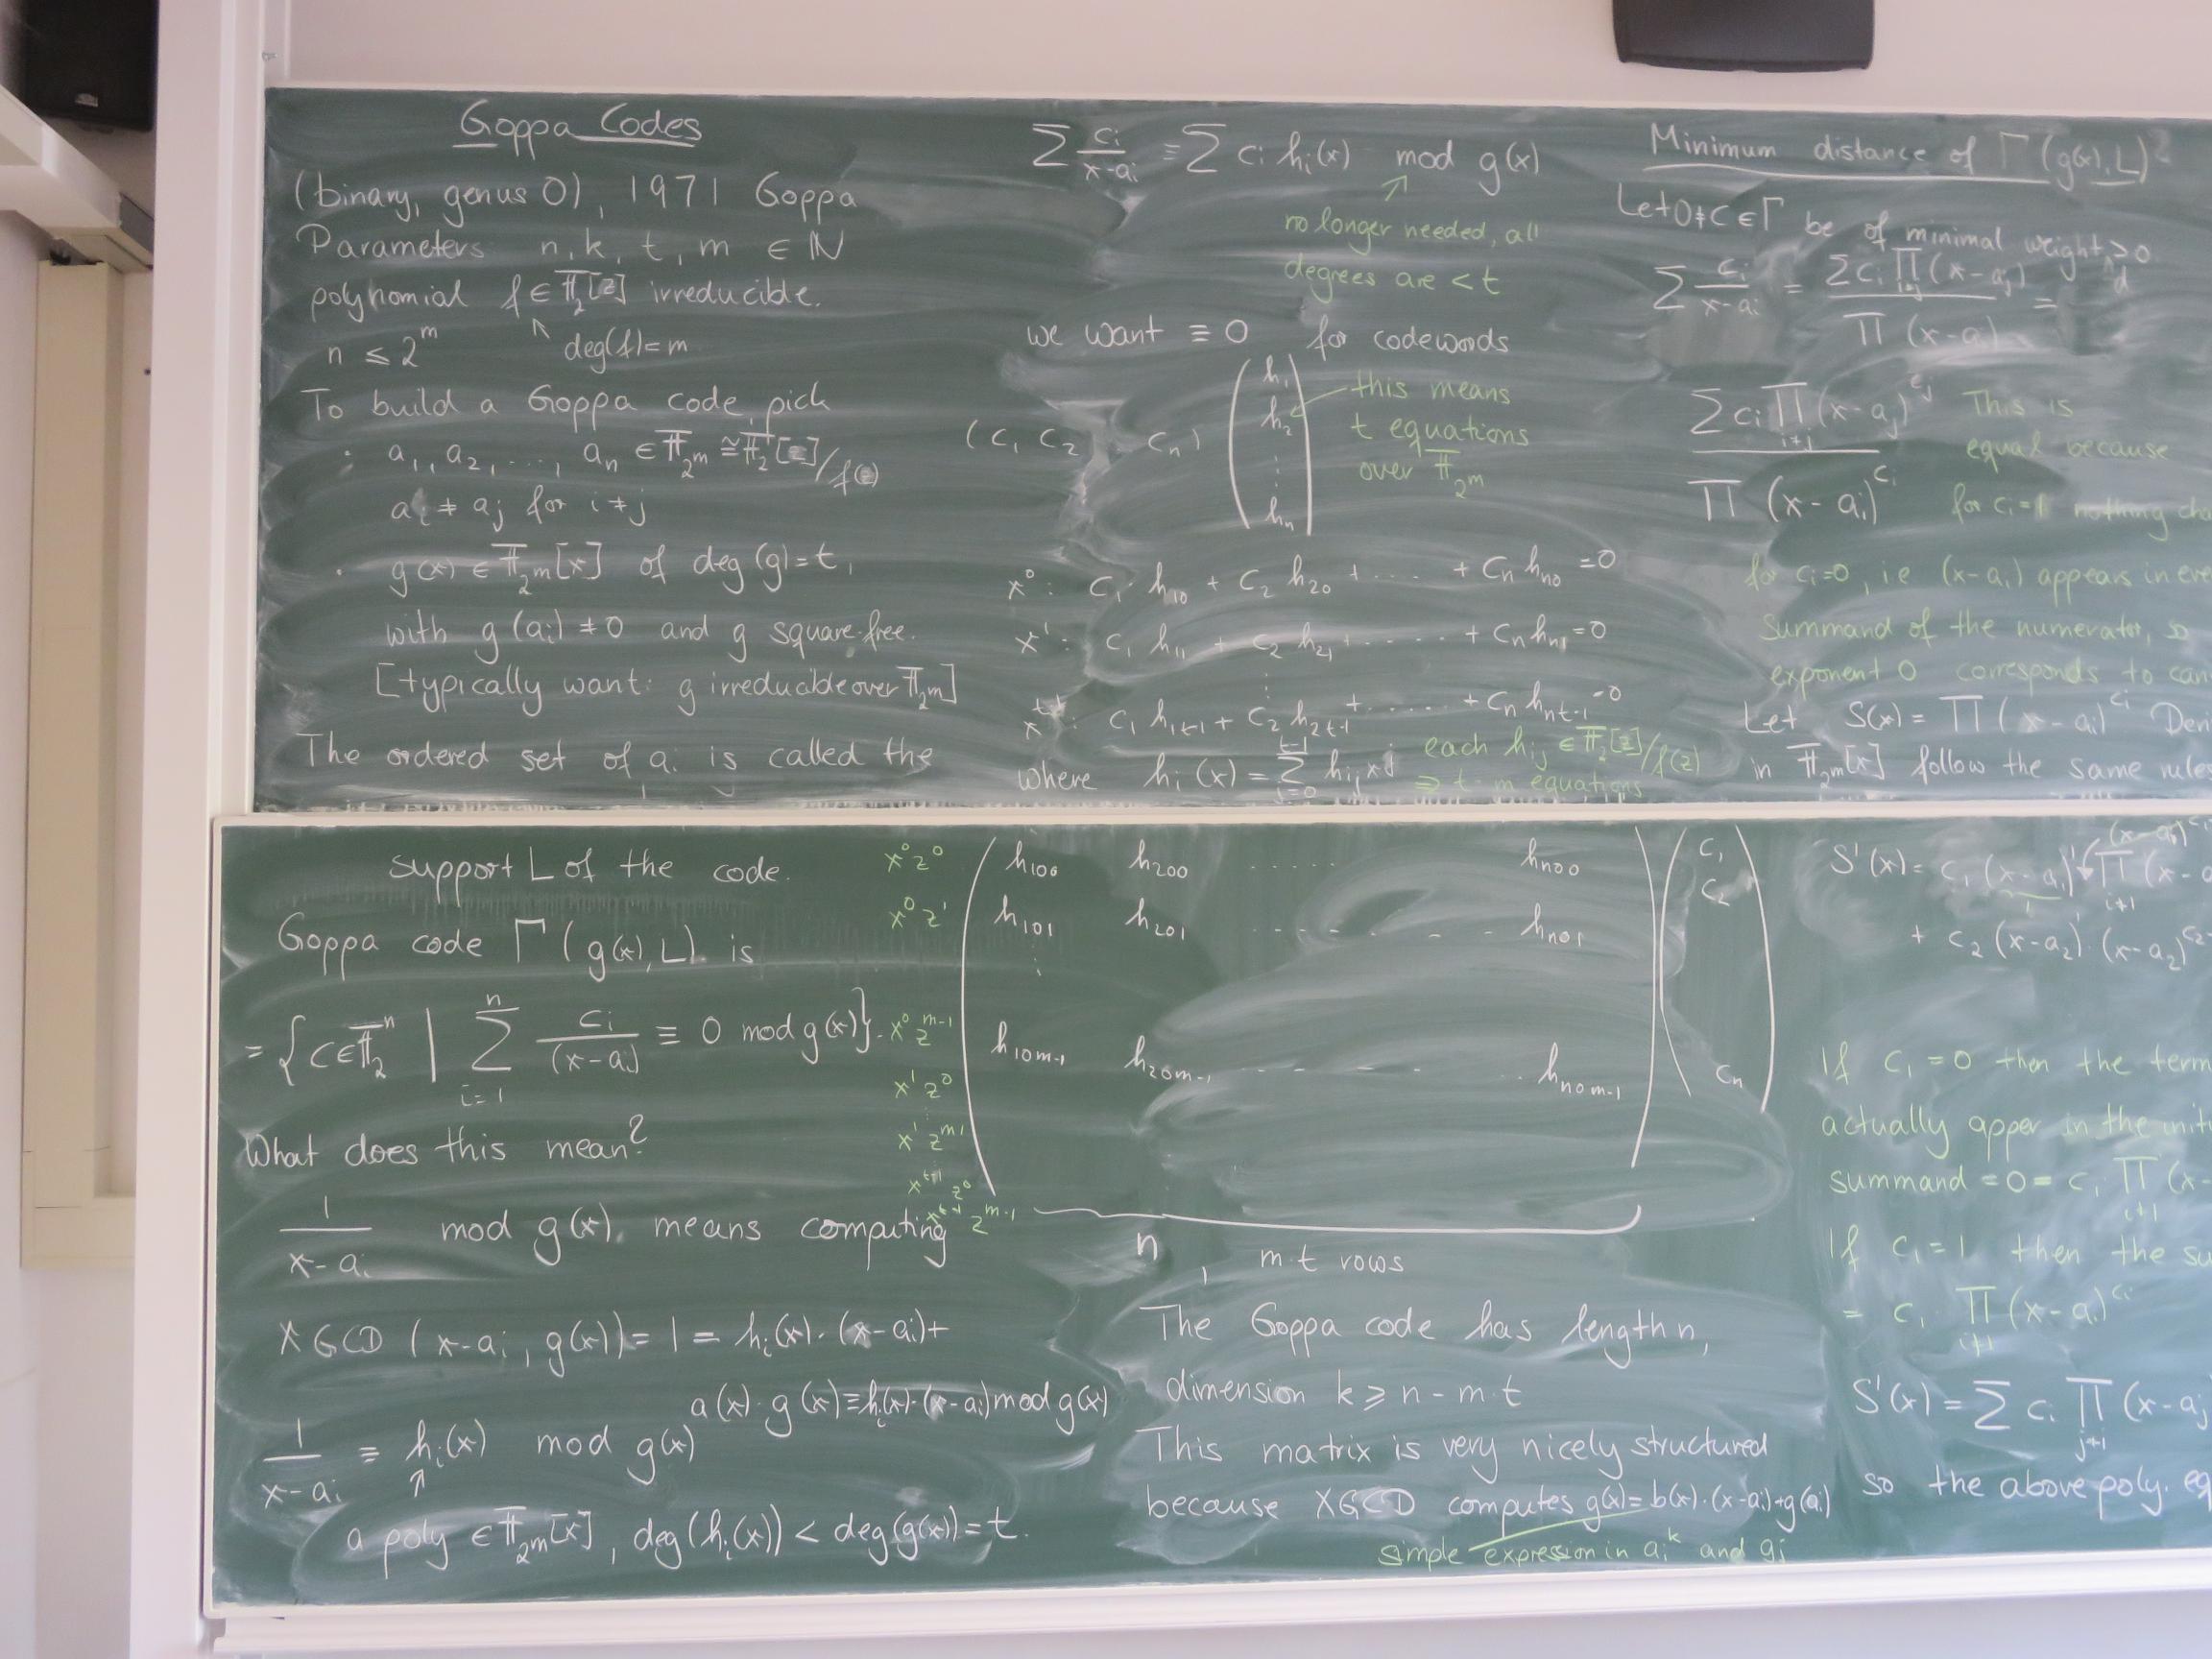 Goppa Codes
(binary, genus 0), 1971 Goppa
Parameters n, k, t, m ∈ ℕ
polynomial f ∈ 𝔽₂[z] irreducible.
n ≤ 2^m ↖ deg(f) = m
To build a Goppa code pick
· a₁, a₂, ..., aₙ ∈ 𝔽_{2^m} ≅ 𝔽₂[z]/f(z)
a_i ≠ a_j for i ≠ j
· g(x) ∈ 𝔽_{2^m}[x] of deg(g) = t,
with g(a_i) ≠ 0 and g square-free.
[typically want: g irreducible over 𝔽_{2^m}]
The ordered set of a_i is called the
support L of the code.
Goppa code Γ(g(x), L) is
= {c ∈ 𝔽₂^n | Σ_{i=1}^n c_i/(x-a_i) ≡ 0 mod g(x)}.
What does this mean?
1/(x-a_i) mod g(x) means computing
XGCD (x-a_i, g(x)) = 1 = h_i(x)·(x-a_i) +
a(x)·g(x) ≡ h_i(x)·(x-a_i) mod g(x)
1/(x-a_i) ≡ h_i(x) mod g(x)
↑
a poly ∈ 𝔽_{2^m}[x], deg(h_i(x)) < deg(g(x)) = t.
Σ c_i/(x-a_i) ≡ Σ c_i h_i(x) mod g(x)
↗
no longer needed, all
degrees are < t
we want ≡ 0 for codewords
(c₁ c₂ ... cₙ) (h₁ h₂ ⋮ hₙ)
this means
t equations
over 𝔽_{2^m}
x^0: c₁ h₁₀ + c₂ h₂₀ + .... + cₙ h_{n0} = 0
x^1: c₁ h₁₁ + c₂ h₂₁ + ...... + cₙ h_{n1} = 0
⋮
x^{t-1}: c₁ h_{1t-1} + c₂ h_{2t-1} + ...... + cₙ h_{nt-1} = 0
where h_i(x) = Σ_{j=0}^{t-1} h_{ij} x^j
each h_{ij} ∈ 𝔽₂[z]/f(z)
⇒ t·m equations
x^0 z^0 h₁₀₀ h₂₀₀ ...... h_{n00} c₁
c₂
x^0 z^1 h₁₀₁ h₂₀₁ ........ h_{n01}
⋮
x^0 z^{m-1} h_{10m-1} h_{20m-1} ...... h_{n0m-1} cₙ
x^1 z^0
⋮
x^1 z^{m-1}
x^{t-1} z^0
x^{t-1} z^{m-1}
n, m·t rows
The Goppa code has length n,
dimension k ≥ n - m·t
This matrix is very nicely structured
because XGCD computes g(x) = b(x)·(x-a_i)+g(a_i)
simple expression in a_i^k and g_j
Minimum distance of Γ(g(x), L)?
Let 0 ≠ c ∈ Γ be of minimal weight > 0
d
Σ c_i/(x-a_i) = Σ c_i Π_{i≠j}(x-a_j) / Π(x-a_i) =
Σ c_i Π_{i≠j}(x-a_j)^{c_j} / Π(x-a_i)^{c_i}
This is
equal because
for c_i = 1 nothing cha
for c_i = 0, ie (x-a_i) appears in eve
summand of the numerator, so
exponent 0 corresponds to can
Let S(x) = Π(x-a_i)^{c_i} Den
in 𝔽_{2^m}[x] follow the same rules
S'(x) = c₁ (x-a₁)' Π_{i≠1} (x-a
+ c₂ (x-a₂)' · (x-a₂)^{c₂-
If c₁ = 0 then the term
actually apper in the initi
summand = 0 = c₁ Π_{i≠1} (x-
If c₁ = 1 then the su
= c₁ · Π_{i≠1} (x-a_i)^{c_i}
S'(x) = Σ c_i Π_{j≠i} (x-a_j
so the above poly. eq